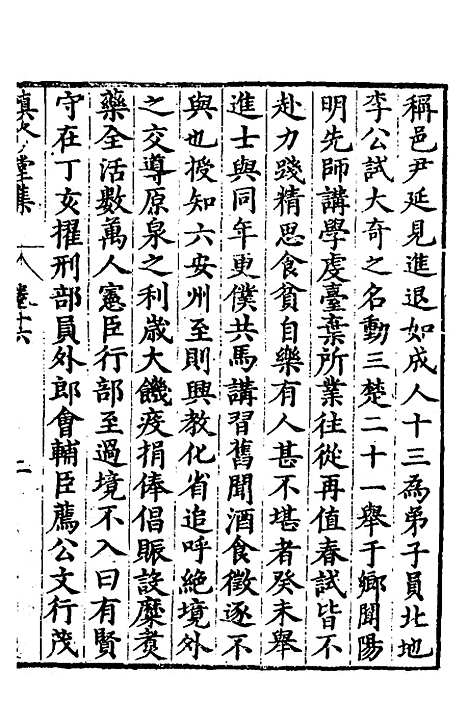 稱邑尹延見進退如成人十三為弟子員北地
李公試大奇之名動三楚二十一舉于鄉聞陽
明先師講學虔臺棄所業往從再值春試皆不
赴力踐精思食貧自樂有人甚不堪者癸未舉
進士與同年更僕共馬講習舊聞酒食徵逐不
與也授知六安州至則興教化省追呼絶境外
之交導原泉之利歳大饑疫捐俸倡賑設糜煑
藥全活數萬人憲臣行部至過境不入曰有賢
守在丁亥擢刑部員外郎會輔臣薦公文行茂
堂集 卷十六 二